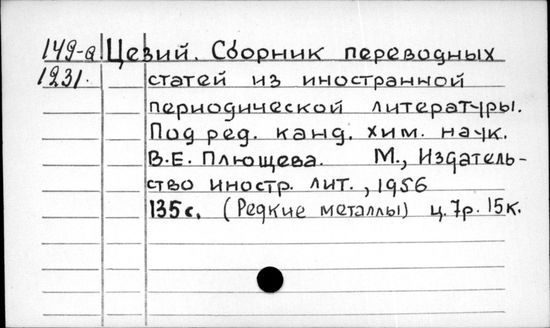 149-а Цезий. Сборник переводных
1231. статей из иностранной
периодической литературы.
Под ред. канд. хим. наук.
В.Е. Плющева. М., Издатель-
ство иностр. лит., 1956
135с. (Редкие металлы) ц. 7р. 15к.